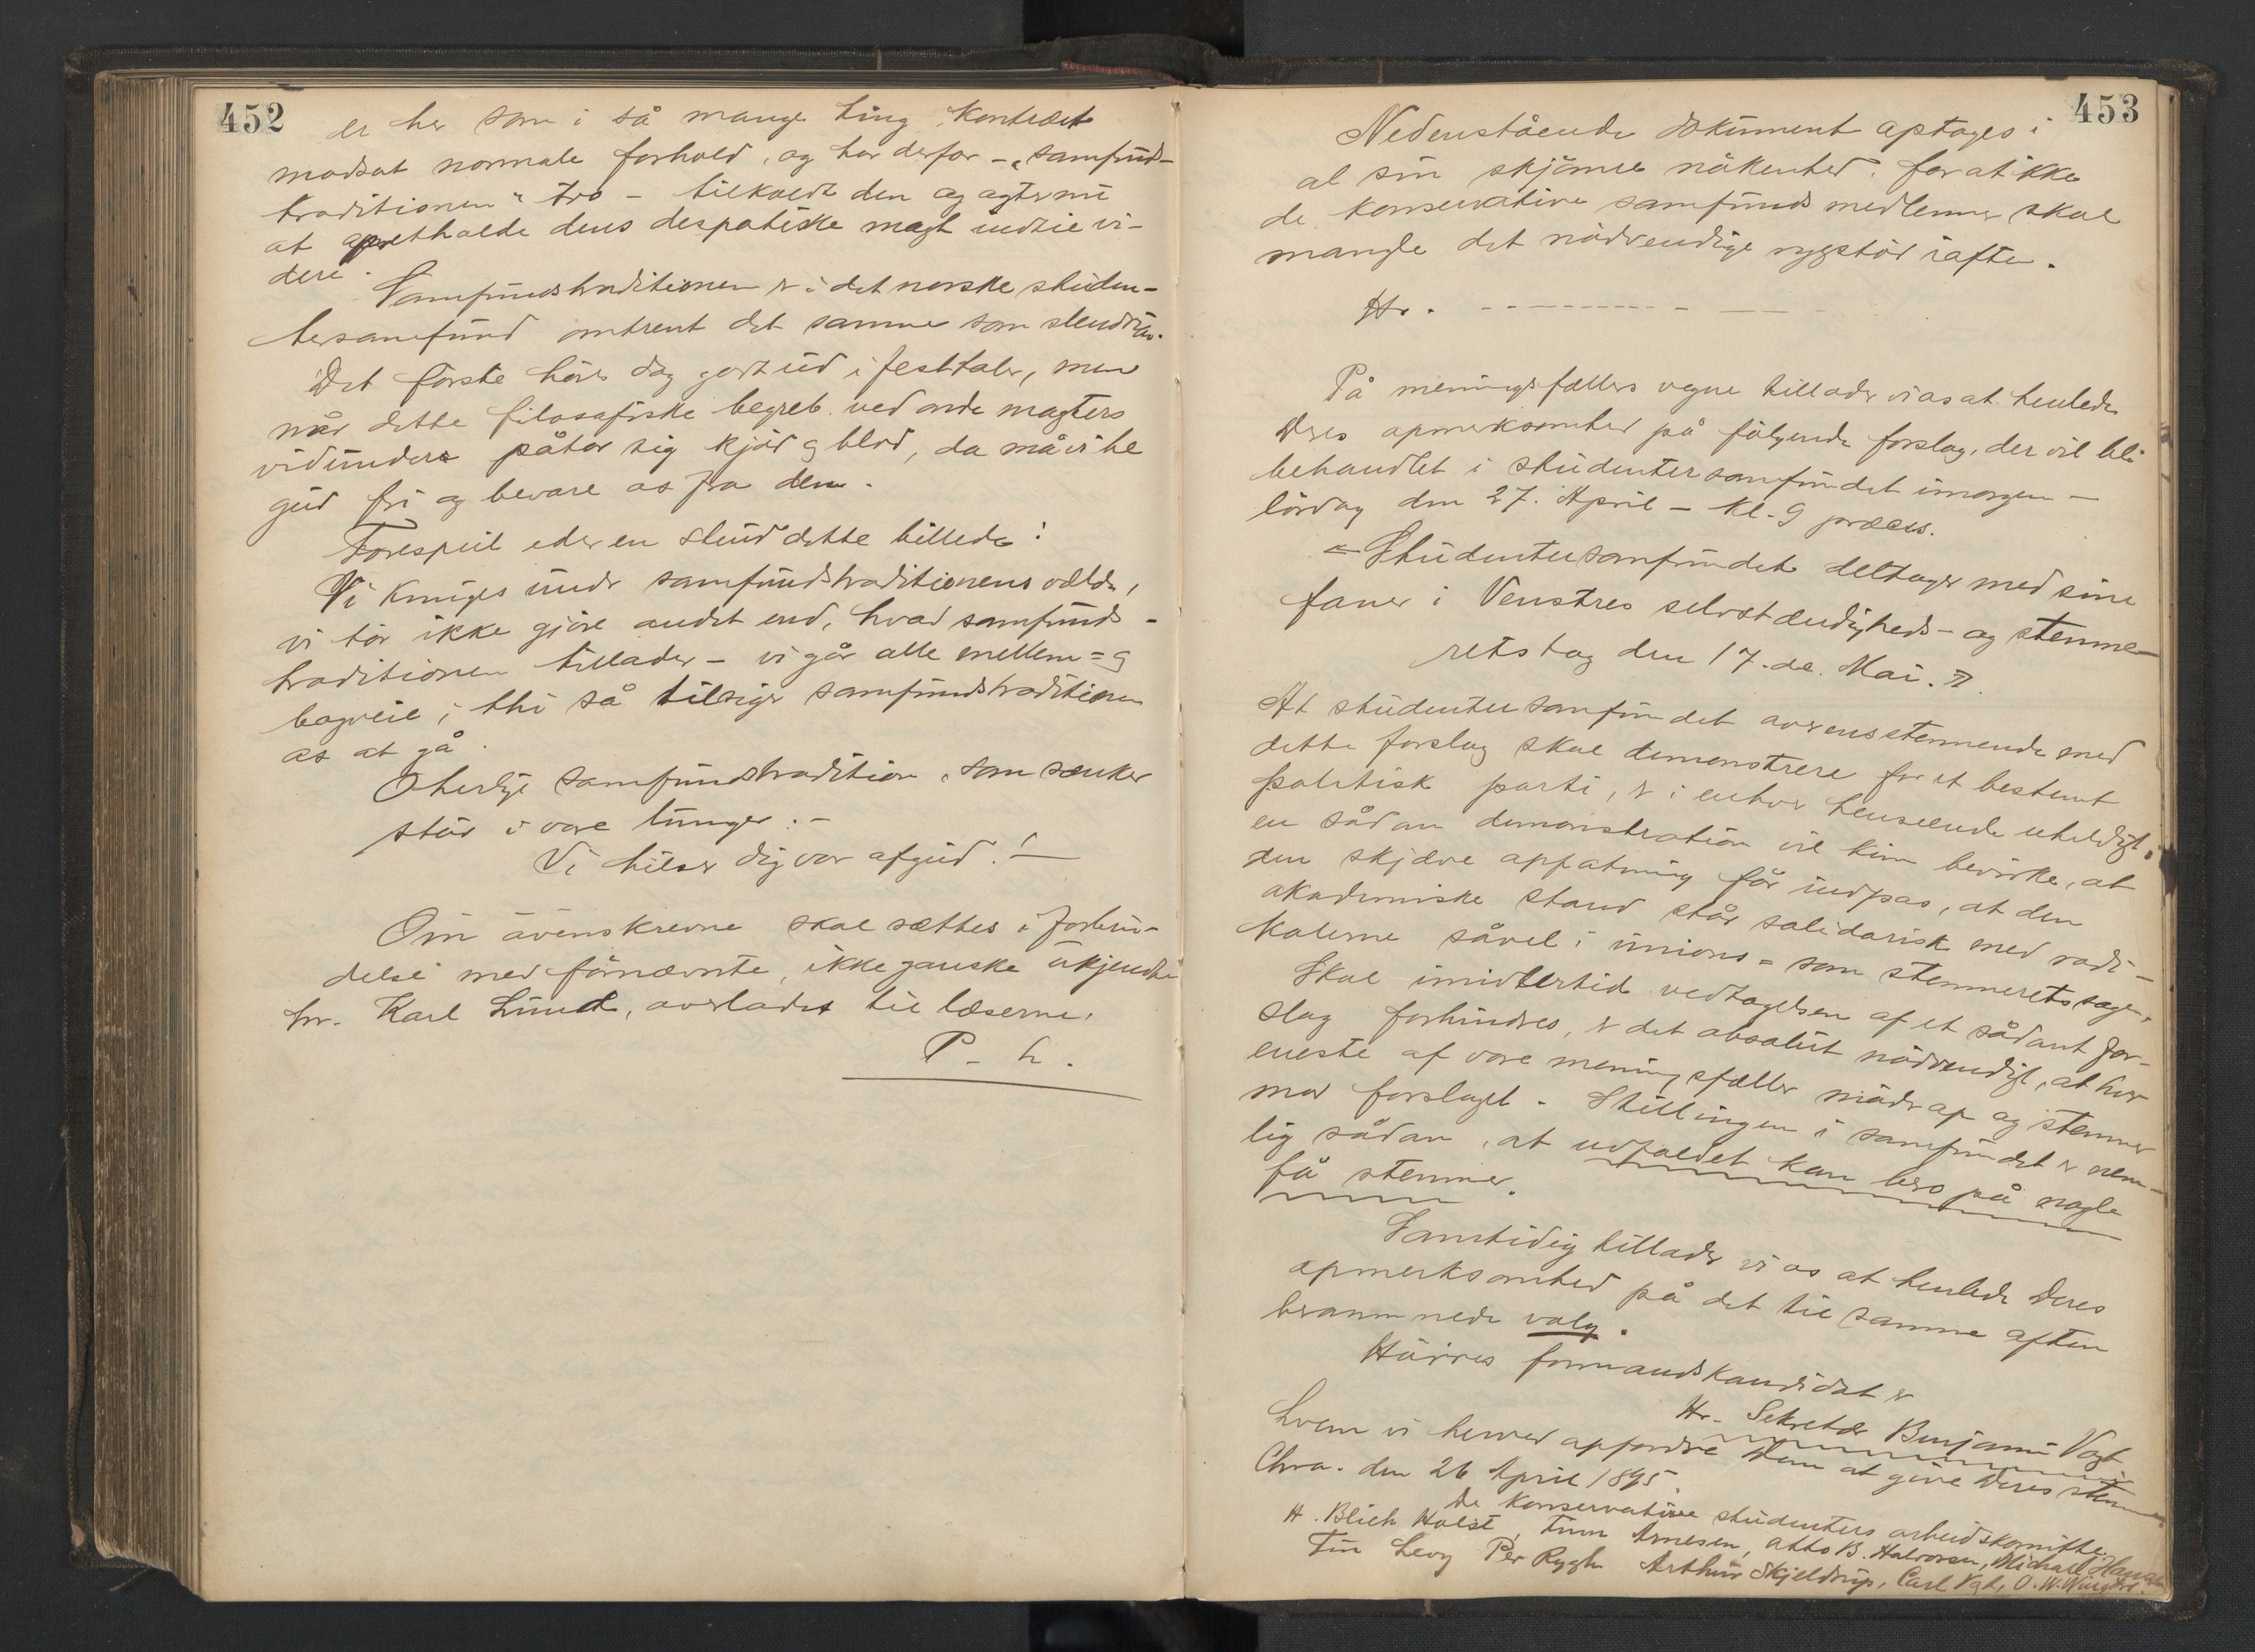 452
er her som i så mange ting kontræt
modsat normale forhold, og har derfor – „samfunds-
traditionen" tro – tilkaldt den og agter nu
at opretholde dens despotiske magt indtil vi-
dere.
Samfundstraditionen er i det norske studen-
tersamfund omtrent det samme som slendrian.
Det første høres dog godt ud i festtaler, men
når dette filosofiske begreb ved onde magters
vidundere påtar sig kjød og blod, da må vi be
gud fri og bevare os fra dem.
Forespeil eder en stund dette billede:
Vi knuges under samfundstraditionens vælde,
vi tør ikke gjøre andet end, hvad samfunds-
traditionen tillader – vi går alle mellem= og
bagveie; thi så tilsiger samfundstraditionen
os at gå.
O herlige samfundstradition, som sænker
støv i vore lunger. –
Vi hilser dig vor afgud! –
Om ovenskrevne skal sættes i forbin-
delse med førnævnte, ikke ganske ukjendte
hr. Karl Lund, overlades til læserne.
P. h.
453
Nedenstående dokument optages i
al sin skjønne nøkenhed, for at ikke
de konservative samfundsmedlemmer skal
mangle det nødvendige rygstød iaften.
Hr. - - - - - - - - -
På meningsfællers vegne tillader vi os at henlede
Deres opmerksomhed på følgende forslag, der vil bli
behandlet i studentersamfundet imorgen –
lørdag den 27. April – kl. 9 præcis.
„Studentersamfundet deltager med sine
faner i Venstres selvstændigheds- og stemme-
retstog den 17.de Mai."
At studentersamfundet overensstemmende med
dette forslag skal demonstrere for et bestemt
politisk parti, er i enhver henseende uheldigt.
en sådan demonstration vil kun bevirke, at
den skjæve opfatning får indpas, at den
akademiske stand står solidarisk med radi-
kalerne såvel i unions= som stemmeretssagen.
Skal imidlertid vedtagelsen af et sådant for-
slag forhindres, er det absolut nødvendigt, at hver
eneste af vore meningsfæller møder op og stemmer
mod forslaget. Stillingen i samfundet er nem-
lig sådan, at udfaldet kan bero på nogle
få stemmer.
Samtidig tillader vi os at henlede Deres
opmerksomhed på det til samme aften
berammede valg.
Høires formandskandidat er
Hr. Sekretær Benjamin Vogt
hvem vi herved opfordre Dem at give Deres stemme.
Chra. den 26 April 1895.
De konservative studenters arbeidskomitte.
H. Blich Holst, Tnm Arnesen, Otto B. Halvorsen, Michael Hansen
Tin Levy Per Rygh Arthur Skjeldrup, Carl